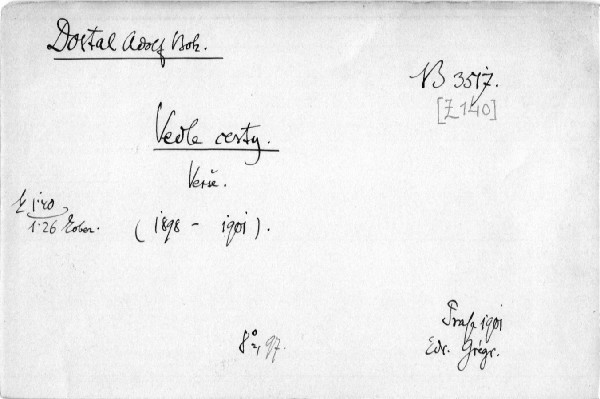 Dostal Adolf Boh.
NB 3517.
[Z 140]
Vedle cesty.
Verše.
K 1·20
1·26 Kober.
(1898 - 1901).
8°, 97.
Praha 1901
Edv. Grégr.